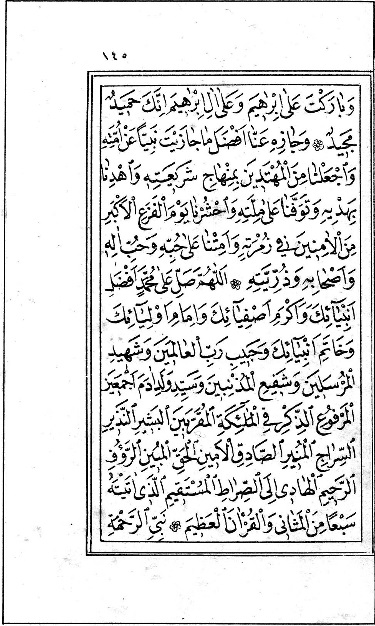 ١٤٥
وَبَارَكْتَ عَلَى اِبْرٰهِيمَ وَعَلٰى اٰلِ اِبْرٰهِيمَ اِنَّكَ حَمِيدٌ
مَجِيدٌ ۞ وَجَازِهِ عَنَّا اَفْضَلَ مَا جَازَيْتَ نَبِيًّا عَنْ اُمَّتِهِ
وَاجْعَلْنَا مِنَ الْمُهْتَدِينَ بِمِنْهَاجِ شَرِيعَتِهِ وَاهْدِنَا
بِهَدْيِهِ وَتَوَفَّنَا عَلٰى مِلَّتِهِ وَاحْشُرْنَا يَوْمَ الْفَزَعِ الْاَكْبَرِ
مِنَ الْاٰمِنِينَ فِي زُمْرَتِهِ وَاَمِتْنَا عَلٰى حُبِّهِ وَحُبِّ اٰلِهِ
وَاَصْحَابِهِ وَذُرِّيَّتِهِ ۞ اَللّٰهُمَّ صَلِّ عَلٰى مُحَمَّدٍ اَفْضَلِ
اَنْبِيَائِكَ وَاَكْرَمِ اَصْفِيَائِكَ وَاِمَامِ اَوْلِيَائِكَ
وَخَاتَمِ اَنْبِيَائِكَ وَحَبِيبِ رَبِّ الْعَالَمِينَ وَشَهِيدِ
الْمُرْسَلِينَ وَشَفِيعِ الْمُذْنِبِينَ وَسَيِّدِ وَلَدِ اٰدَمَ اَجْمَعِينَ
الْمَرْفُوعِ الذِّكْرِ فِي الْمَلٰئِكَةِ الْمُقَرَّبِينَ الْبَشِيرِ النَّذِيرِ
السِّرَاجِ الْمُنِيرِ الصَّادِقِ الْاَمِينِ الْحَقِّ الْمُبِينِ الرَّؤُفِ
الرَّحِيمِ الْهَادِي اِلَى الصِّرَاطِ الْمُسْتَقِيمِ الَّذِي اٰتَيْتَهُ
سَبْعًا مِنَ الْمَثَانِي وَالْقُرْاٰنَ الْعَظِيمَ ۞ نَبِيِّ الرَّحْمَةِ